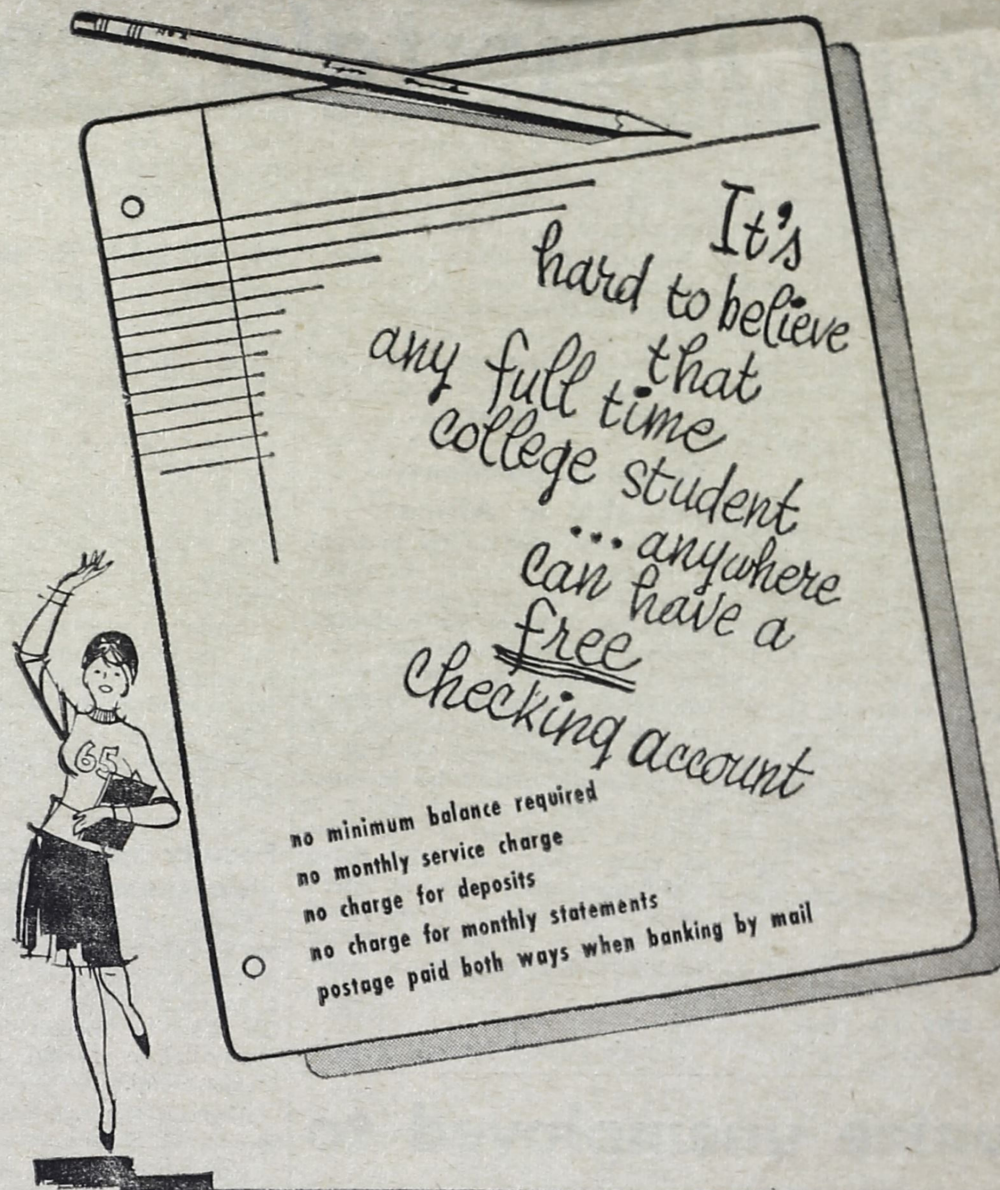 It's
hard to believe
that
any full time
college student
...anywhere
can have a
free
checking account
65
no minimum balance required
no monthly service charge
no charge for deposits
no charge for monthly statements
postage paid both ways when banking by mail